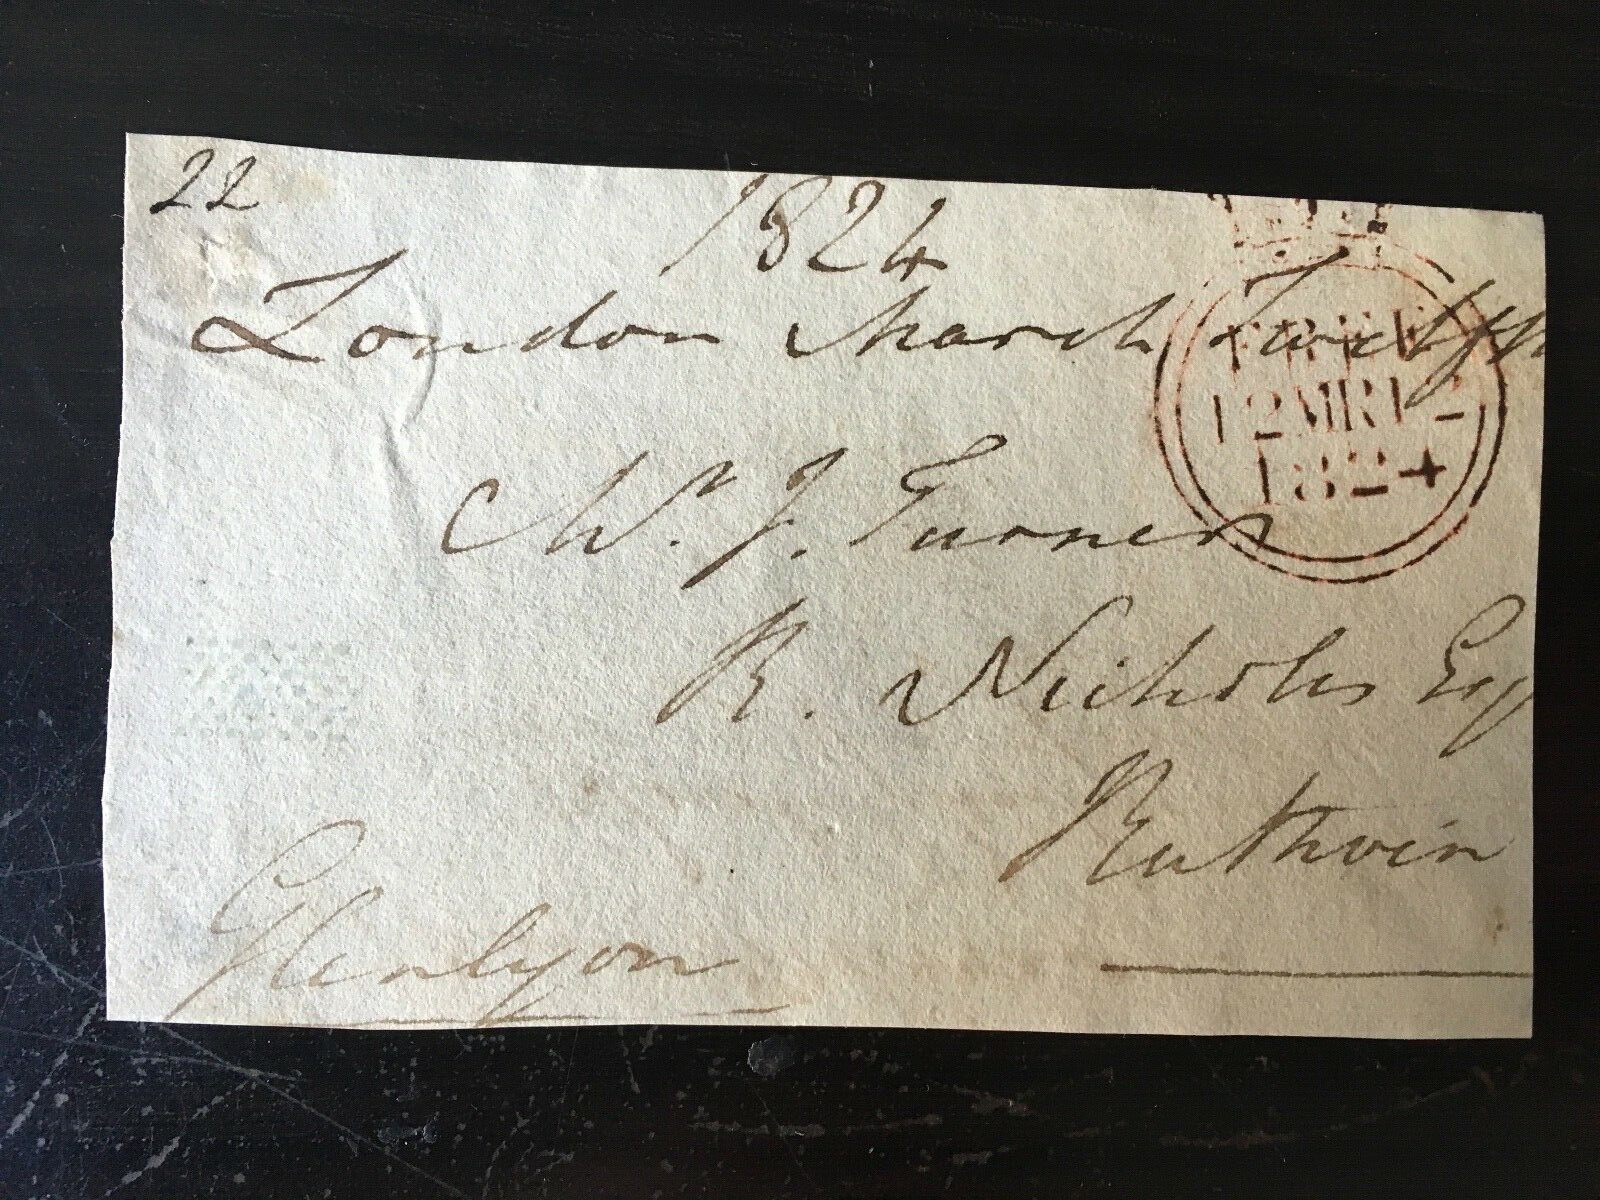 22
1824
London March Twelfth
Mr. J. Turner
R. Nicholls Esq
Ruthvin
Glenlyon
FREE
12MR12
1824